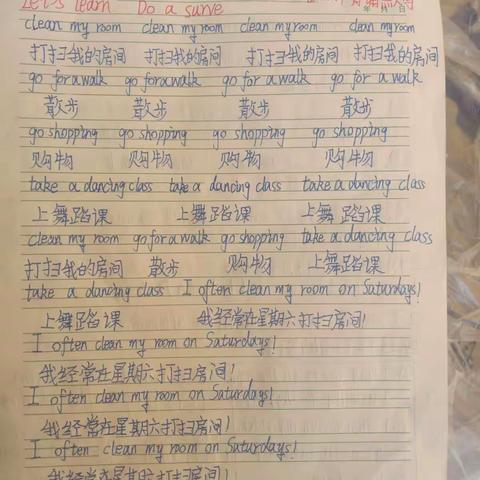 Let's learn Do a surve
clean my room clean my room clean my room clean my room
打扫我的房间 打扫我的房间 打扫我的房间 打扫我的房间
go for a walk go for a walk go for a walk go for a walk
散步 散步 散步 散步
go shopping go shopping go shopping go shopping
购物 购物 购物 购物
take a dancing class take a dancing class take a dancing class
上舞蹈课 上舞蹈课 上舞蹈课
clean my room go for a walk go shopping take a dancing class
打扫我的房间 散步 购物 上舞蹈课
take a dancing class I often clean my room on Saturdays!
上舞蹈课 我经常在星期六打扫房间!
I often clean my room on Saturdays!
我经常在星期六打扫房间!
I often clean my room on Saturdays!
我经常在星期六打扫房间!
I often clean my room on Saturdays!
我经常在星期六打扫房间!